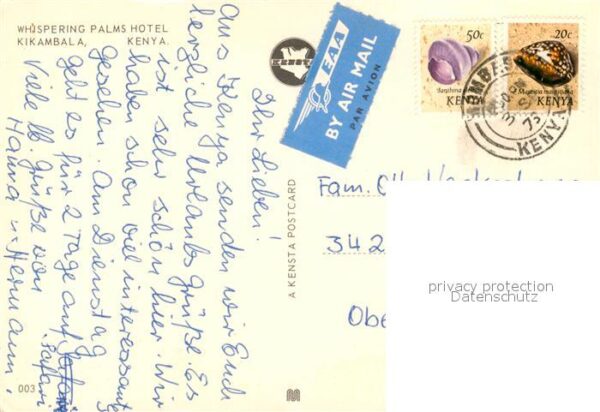 WHISPERING PALMS HOTEL
KIKAMBALA, KENYA.
Ihr Lieben!
Aus Kenya senden wir Euch
herzliche Urlaubsgrüße. Es
ist sehr schön hier. Wir
haben schon viel interessant
gesehen. Am Dienstag
geht es für 2 Tage auf
Safari.
Viele lb. Grüße von
Hanna u. Hermann.
003
A KENSTA POSTCARD
KENSTA
EAA
BY AIR MAIL
PAR AVION
50c
Janthina
KENYA
20c
KENYA
MOMBASA
73
KENYA
Fam. Otto
342
Obe
privacy protection
Datenschutz